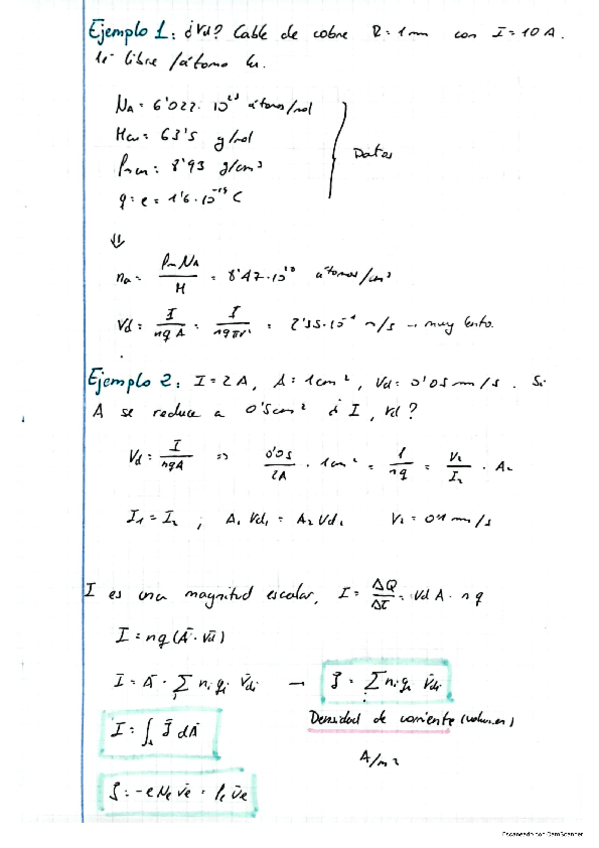 Ejemplo 1: ¿Vd? Cable de cobre R = 1 mm con I = 10 A.
1 e⁻ libre / átomo Cu.
N_A = 6'022 · 10²³ átomos/mol
M_Cu = 63'5 g/mol
ρ_m Cu = 8'93 g/cm³
q = e = 1'6 · 10⁻¹⁹ C
Datos
⇓
n_a = ρ_m N_A / M = 8'47 · 10²² átomos/cm³
Vd = I / nqA = I / nqπr² = 2'35 · 10⁻⁴ m/s → muy lento.
Ejemplo 2: I = 2 A, A = 1 cm², Vd = 0'05 mm/s. Si
A se reduce a 0'5 cm² ¿I, Vd?
Vd = I / nqA ⇒ 0'05 / 2A · 1 cm² = 1 / nq = V₂ / I₂ · A₂
I₁ = I₂ ; A₁ Vd₁ = A₂ Vd₂ V₂ = 0'1 mm/s
I es una magnitud escalar, I = ΔQ / Δt = Vd A · n q
I = nq (A̅ · v̅d)
I = A̅ · Σ nᵢ qᵢ v̅dᵢ → J̅ = Σ nᵢ qᵢ v̅dᵢ
I = ∫ₐ J̅ dA̅
Densidad de corriente (volumen)
A/m²
J̅ = -e Nₑ v̅ₑ = ρₑ v̅ₑ
Escaneado con CamScanner